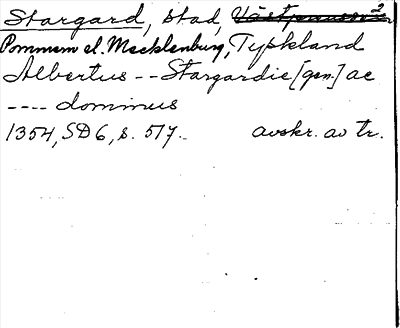 Stargard, stad, Västpreussen?
Pommern el. Mecklenburg, Tyskland
Albertus -- Stargardie [gen.] ac
---- dominus
1354, SD 6, s. 517. avskr. av tr.